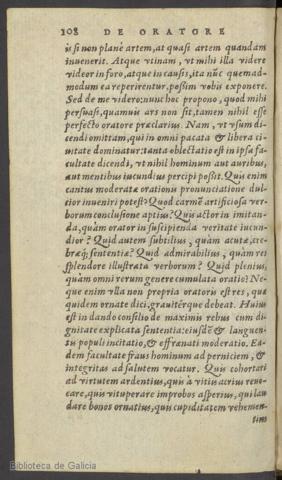 108 DE ORATORE
is si non planè artem, at quasi artem quandam
inuenerit. Atque vtinam, vt mihi illa videre
videor in foro, atque in causis, ita nūc quemad-
modum ea reperirentur, possim vobis exponere.
Sed de me videro; nunc hoc propono, quod mihi
persuasi, quamuis ars non sit, tamen nihil esse
perfecto oratore præclarius. Nam, vt vsum di-
cendi omittam, qui in omni pacata & libera ci-
uitate dominatur: tanta oblectatio est in ipsa fa-
cultate dicendi, vt nihil hominum aut auribus,
aut mentibus iucundius percipi possit. Quis enim
cantus moderatæ orationis pronunciatione dul-
cior inueniri potest? Quod carmē artificiosa ver-
borum conclusione aptius? Quis actor in imitan-
da, quàm orator in suscipienda veritate iucun-
dior? Quid autem subtilius, quàm acutæ, cre-
bræq́; sententiæ? Quid admirabilius, quàm res
splendore illustrata verborum? Quid plenius,
quàm omni rerum genere cumulata oratio? Ne-
que enim vlla non propria oratoris est res, quæ
quidem ornate dici, grauitérque debeat. Huius
est in dando consilio de maximis rebus cum di-
gnitate explicata sententia: eiusdē & languen-
tis populi incitatio, & effrenati moderatio. Ea-
dem facultate fraus hominum ad perniciem, &
integritas ad salutem vocatur. Quis cohortari
ad virtutem ardentius, quis à vitiis acrius reuo-
care, quis vituperare improbos asperius, quis lau
dare bonos ornatius, quis cupiditatem vehemen-
tius
Biblioteca de Galicia